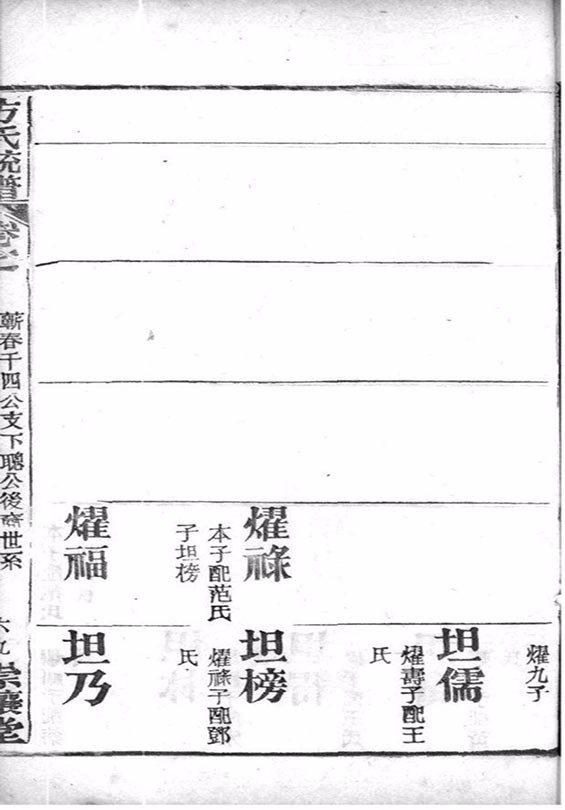 燿祿
本子配范氏
子坦榜
燿福
燿九子
坦儒
燿壽子配王
氏
坦榜
燿祿子配鄧
氏
坦乃
方氏統譜
卷之
蘄春千四公支下聰公後裔世系
六九
崇讓堂